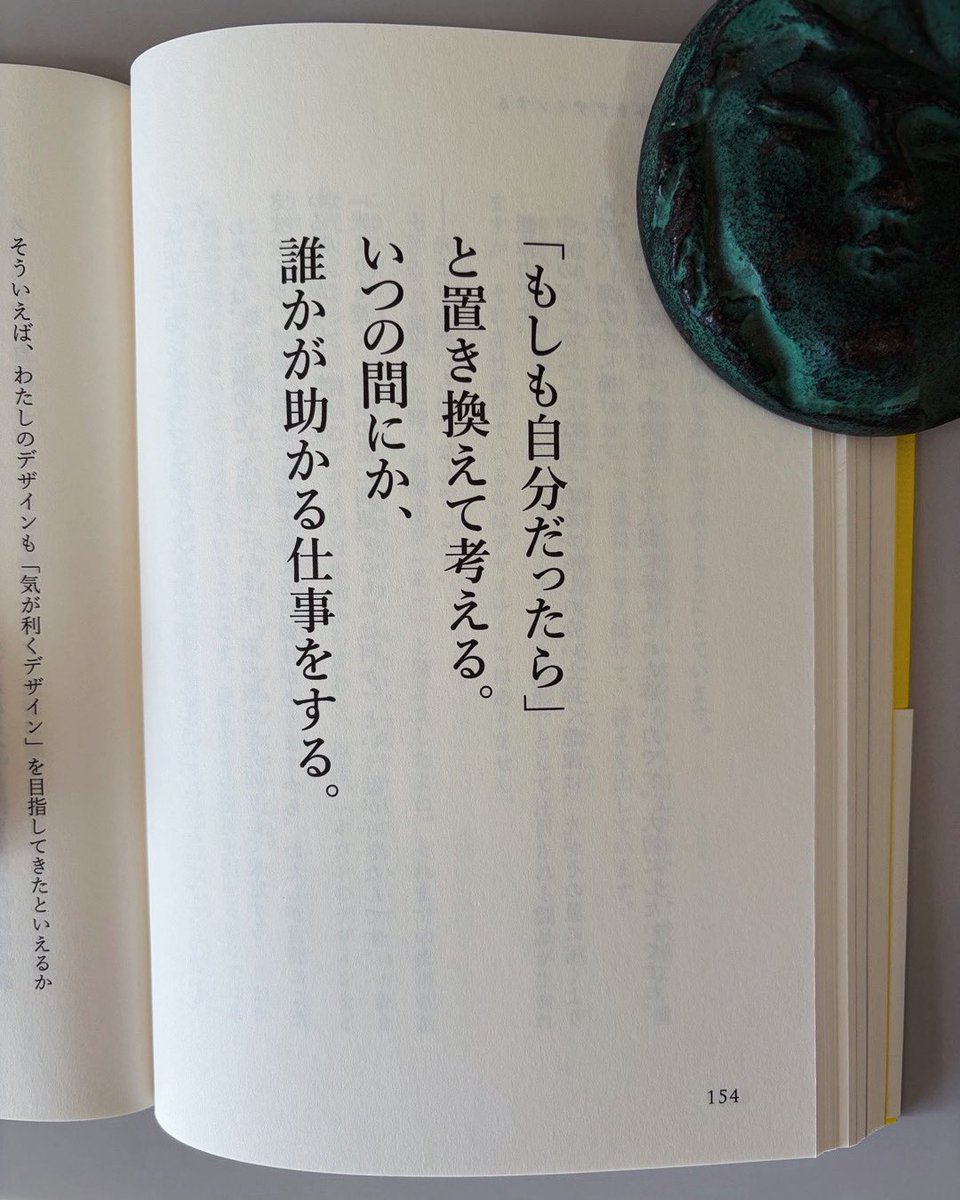 「もしも自分だったら」
と置き換えて考える。
いつの間にか、
誰かが助かる仕事をする。
154
そういえば、わたしのデザインも「気が利くデザイン」を目指してきたといえるか